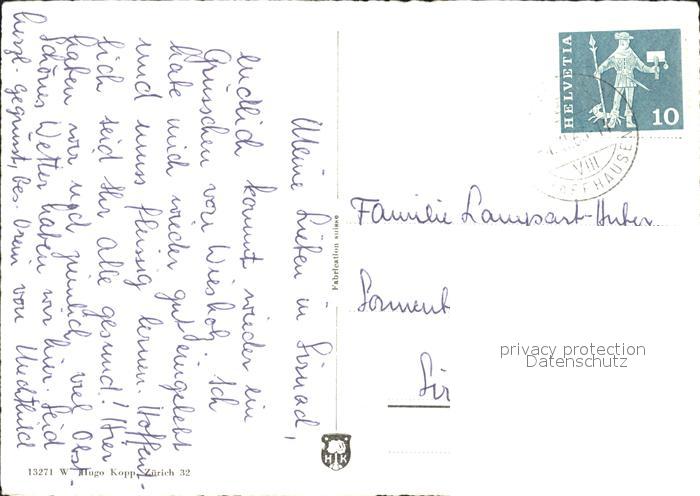 Meine Lieben in Sirnach,
endlich kommt wieder ein
Grüsschen von Wiesholz. Ich
habe mich wieder gut eingelebt
und muss fleissig lernen. Hoffent-
lich seid Ihr alle gesund! Hier
haben wir ziemlich viel Obst.
Schönes Wetter haben wir hier. Seid
herzl. gegrüsst, bes. Vreni von Mechthild
HELVETIA
10
VIII
SCHAFFHAUSEN
Fabrication suisse
Familie Lampart-Huber
Sonnent
Sir
privacy protection
Datenschutz
HK
13271 W Hugo Kopp, Zürich 32